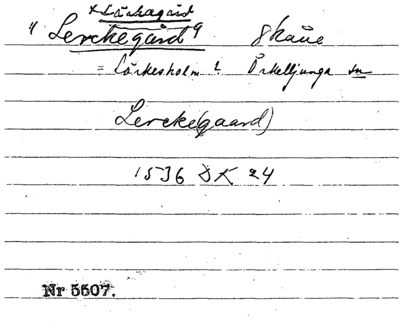 x Lärkagård
"Lerckegård" Skåne
= Lärkesholm i Örkelljunga sn
Lercke(gaard)
1536 SK 24
Nr 5507.